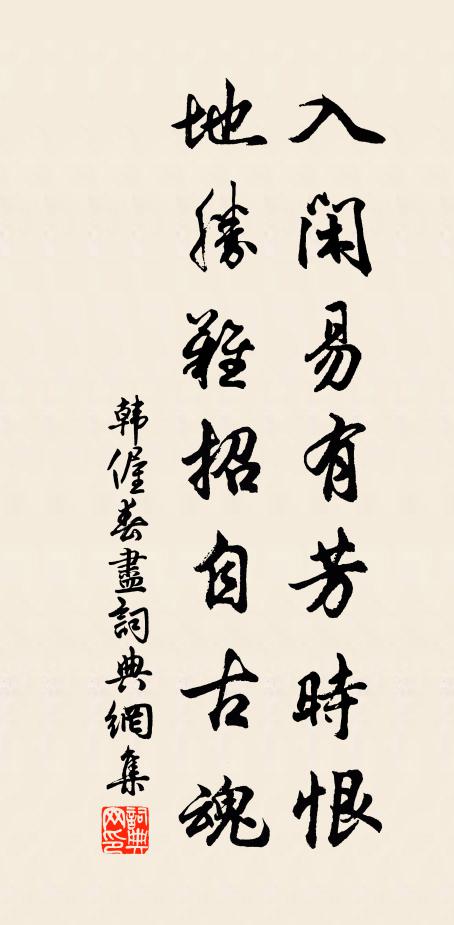 入閑易有芳時恨
地勝難招自古魂
韓偓春盡詞典網集
詞典
网印